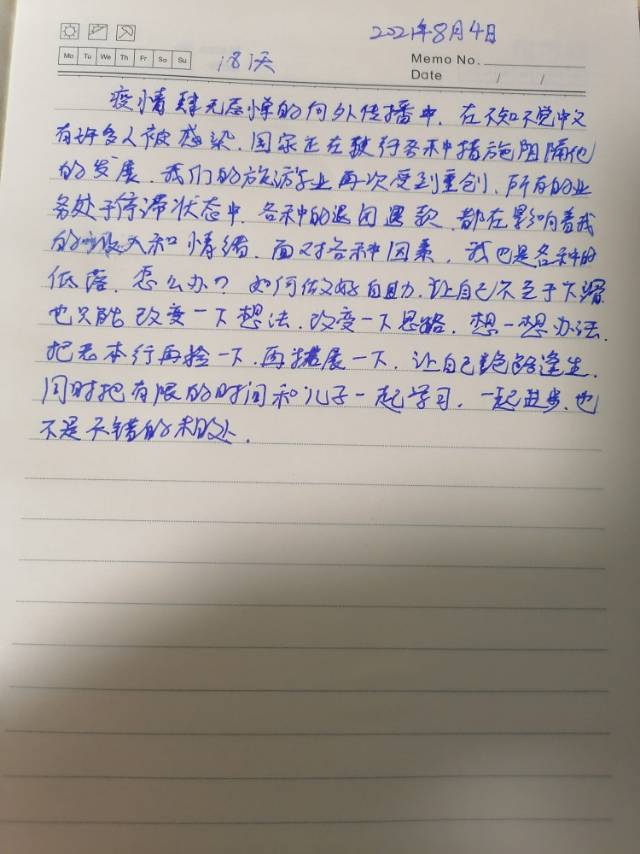 2021年8月4日
Mo Tu We Th Fr Sa Su
18天
Memo No.
Date / /
疫情肆无忌惮的向外传播中,在不知不觉中又
有许多人被感染,国家正在执行各种措施阻隔他
的发展,我们的旅游业再次受到重创,所有的业
务处于停滞状态中,各种的退团退款,都在影响着我
的收入和情绪,面对各种因素,我也是各种的
低落,怎么办?如何做好自助,让自己不至于下滑
也只能改变一下想法,改变一下思路,想一想办法,
把老本行再捡一下,再拓展一下,让自己绝路逢生,
同时把有限的时间和儿子一起学习,一起进步,也
不是不错的相处.